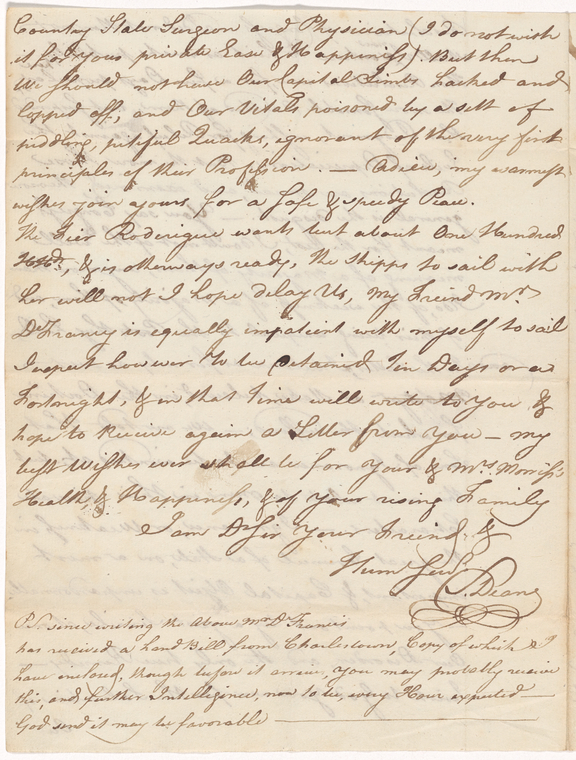 Country State Surgeon and Physician (I do not wish
it for your private Ease & Happiness). But then
We should not have Our Capital Limbs hacked and
lopped off, and Our Vitals poisoned by a sett of
piddling, pitiful Quacks, ignorant of the very first
principles of their Profession. — Adieu, my warmest
wishes join yours, for a safe & speedy Peace.
The Fier Roderigue wants but about One Hundred
Hhds, & is otherways ready, the shipps to sail with
her will not I hope delay Us, my Freind Mr
De Francy is equally impatient with myself to sail
I expect however to be detained Ten Days or a
Fortnight, & in that time will write to You &
hope to Receive again a Letter from You — my
best Wishes ever shall be for Your & Mrs Morris's
Health & Happiness, & of your rising Family
I am Dr Sir Your Freind &
Hume Servt
S. Deane
P.S. since writing the above Mr D Francis
has received a hand Bill from Charlestown, Copy of which I
have inclosed, though before it arrive, you may probably receive
this, and further Intelligence, now to be, every Hour expected —
God send it may be favorable —